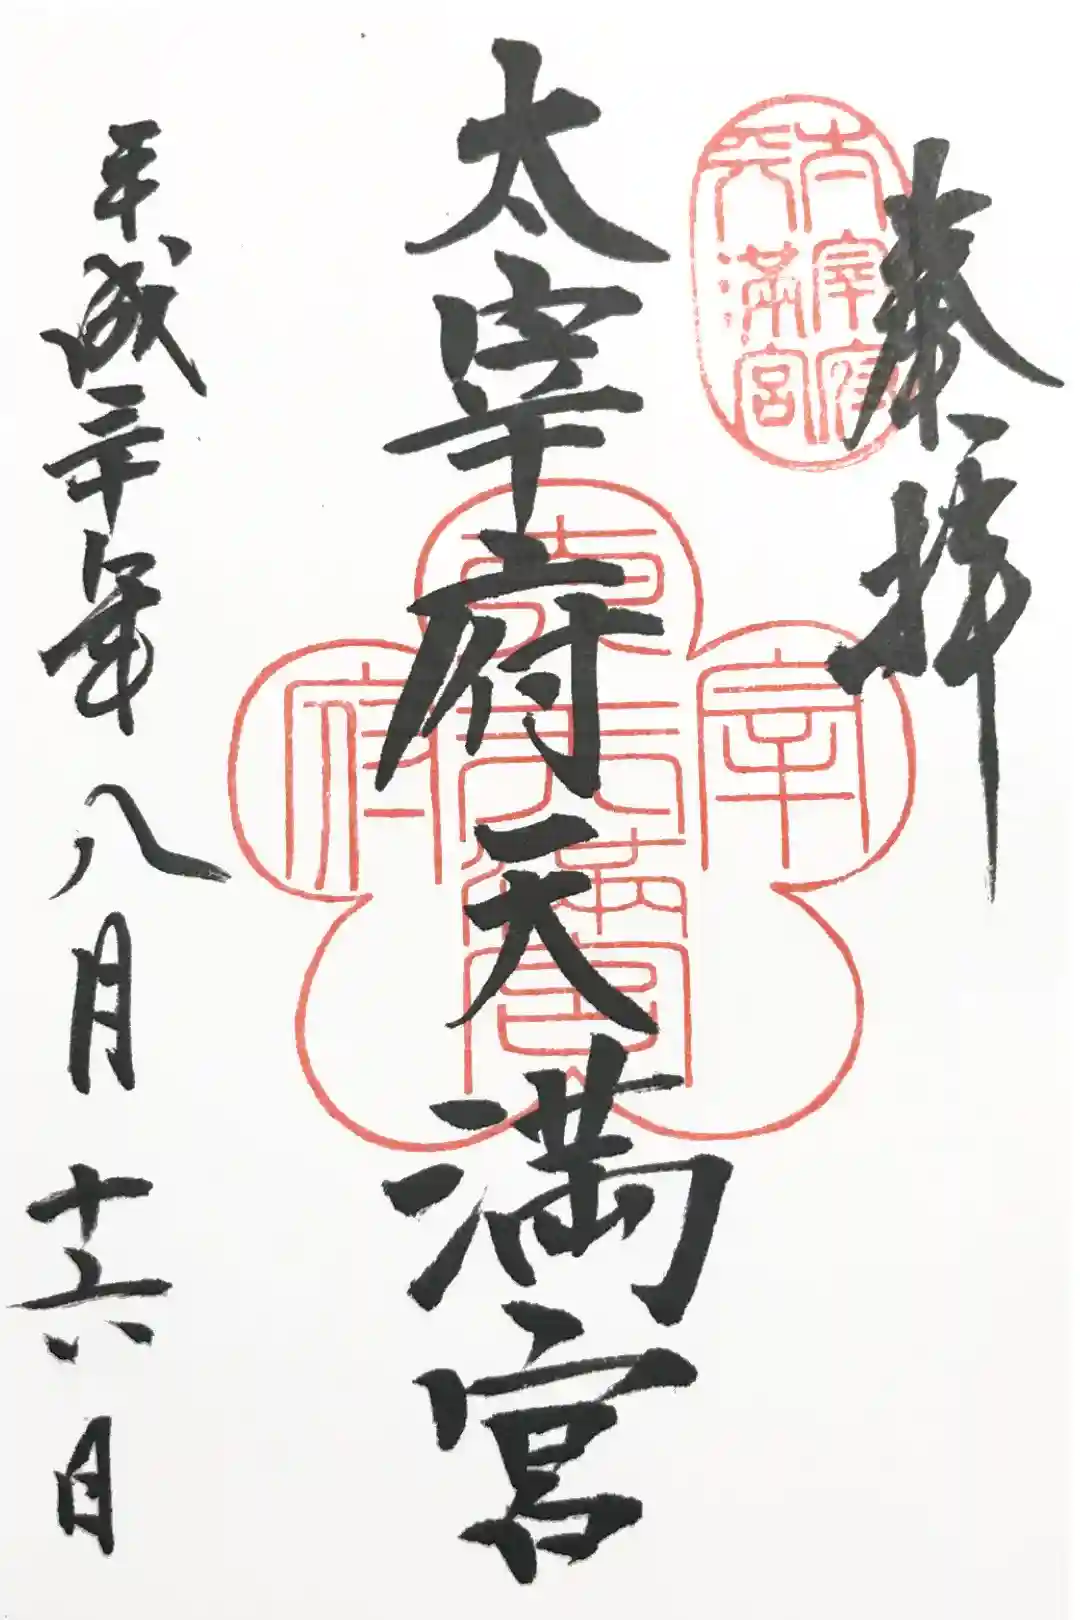 奉拝
太宰府
天滿宮
太宰府天満宮
宰
府
天滿宮
平成三十年八月十六日